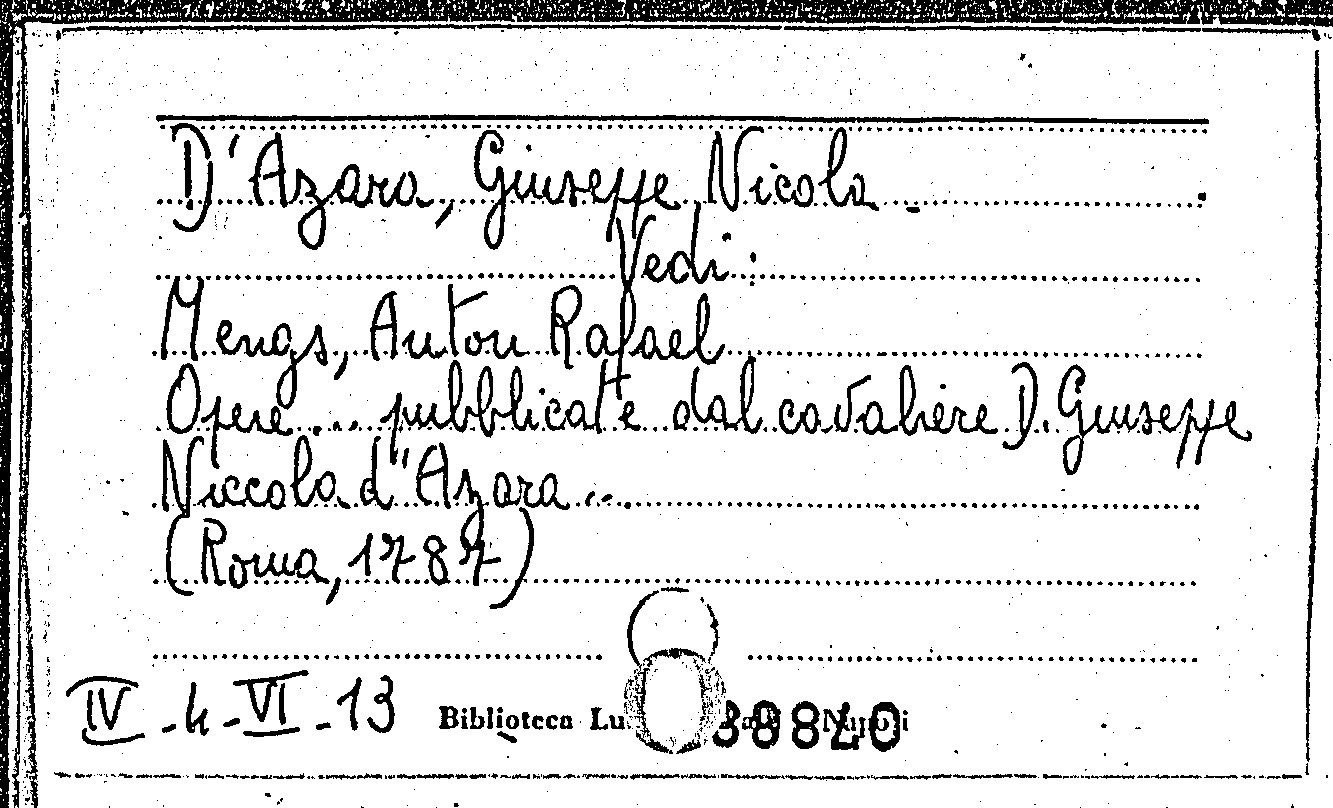 D'Azara, Giuseppe Nicola.
Vedi:
Mengs, Anton Rafael
Opere... pubblicate dal cavaliere D. Giuseppe
Niccola d'Azara...
(Roma, 1787)
IV-4-VI-13 Biblioteca